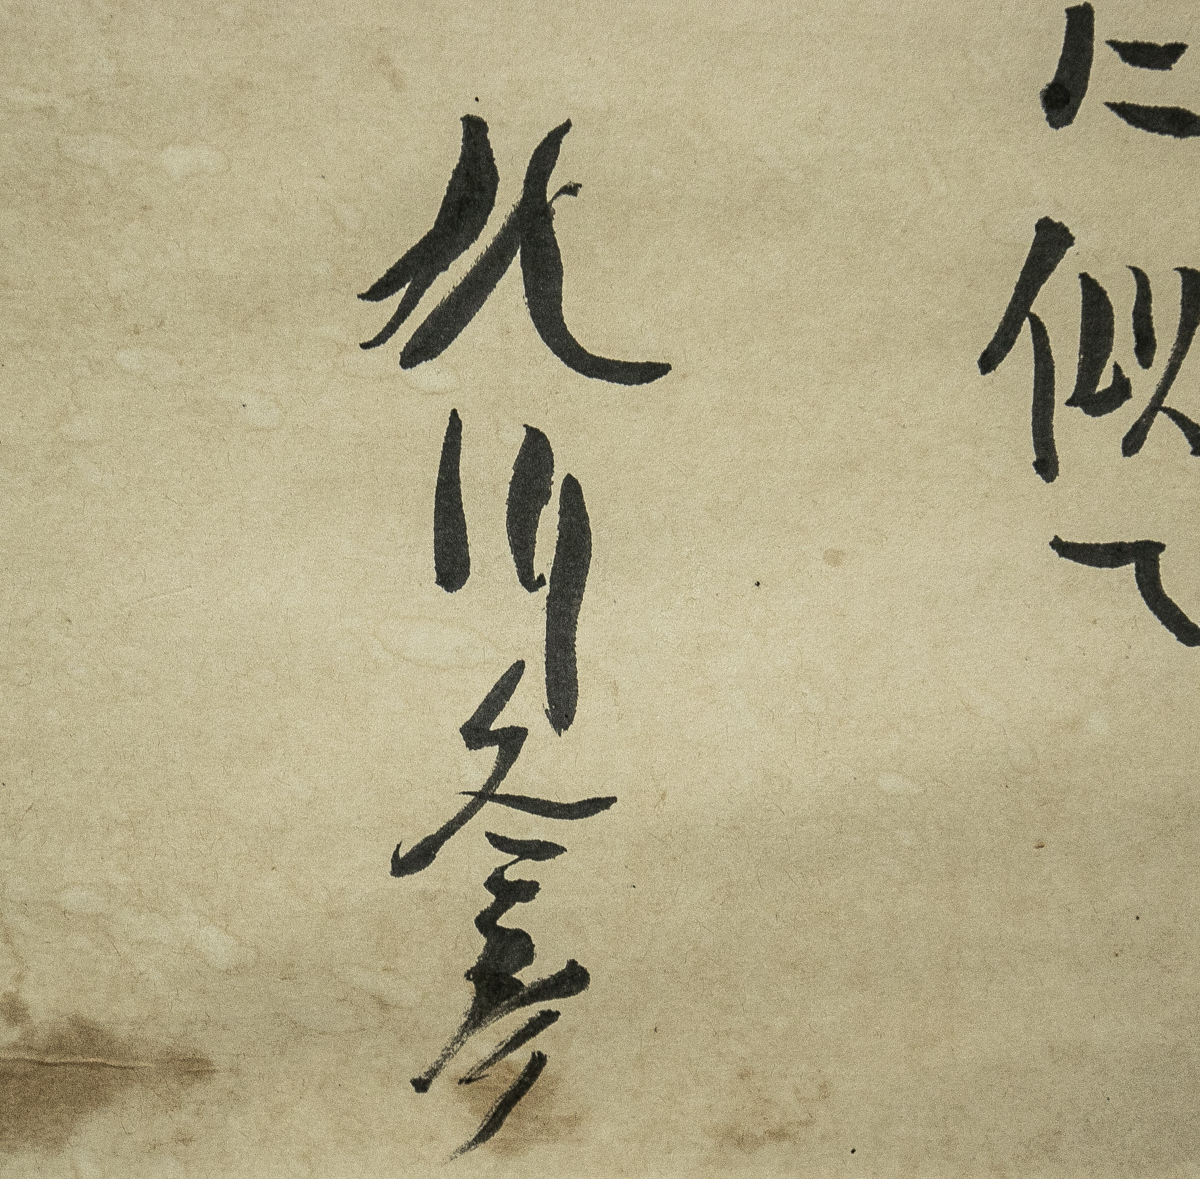 に似て
北川久彦